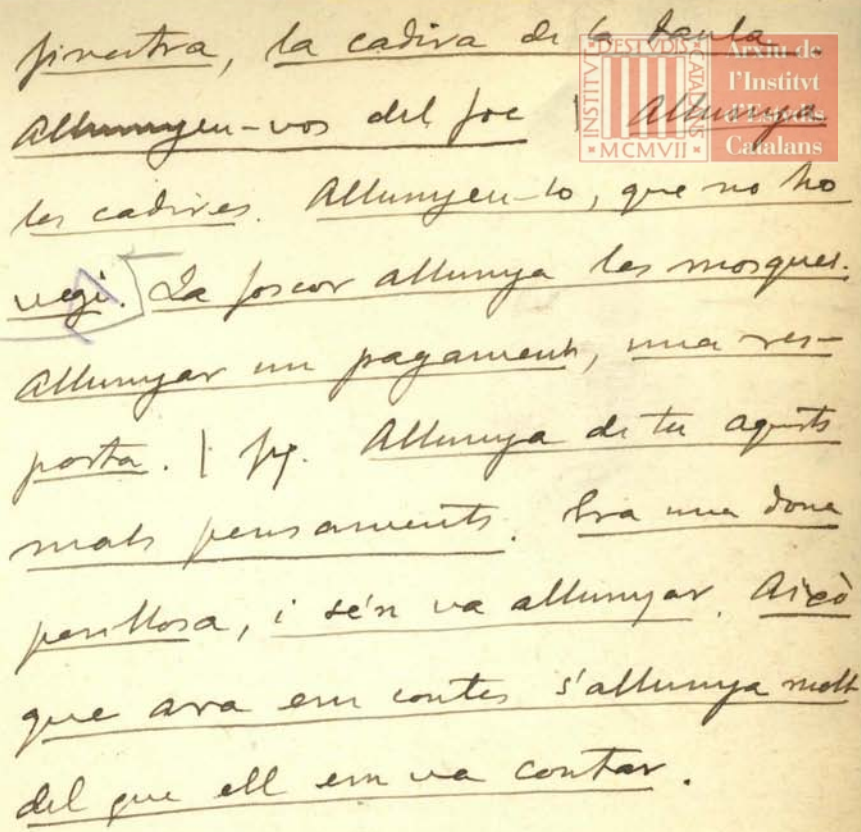 finestra, la cadira de la taula.
Allunyeu-vos del foc | Allunya
les cadires. Allunyeu-lo, que no ho
vegi. La foscor allunya les mosques.
Allunyar un pagament, una res-
posta. | fig. Allunya de tu aquests
mals pensaments. Era una dona
perillosa, i se'n va allunyar. Això
que ara em contes s'allunya molt
del que ell em va contar.
INSTITVT D'ESTVDIS CATALANS
MCMVII
Arxiu de
l'Institvt
d'Estudis
Catalans